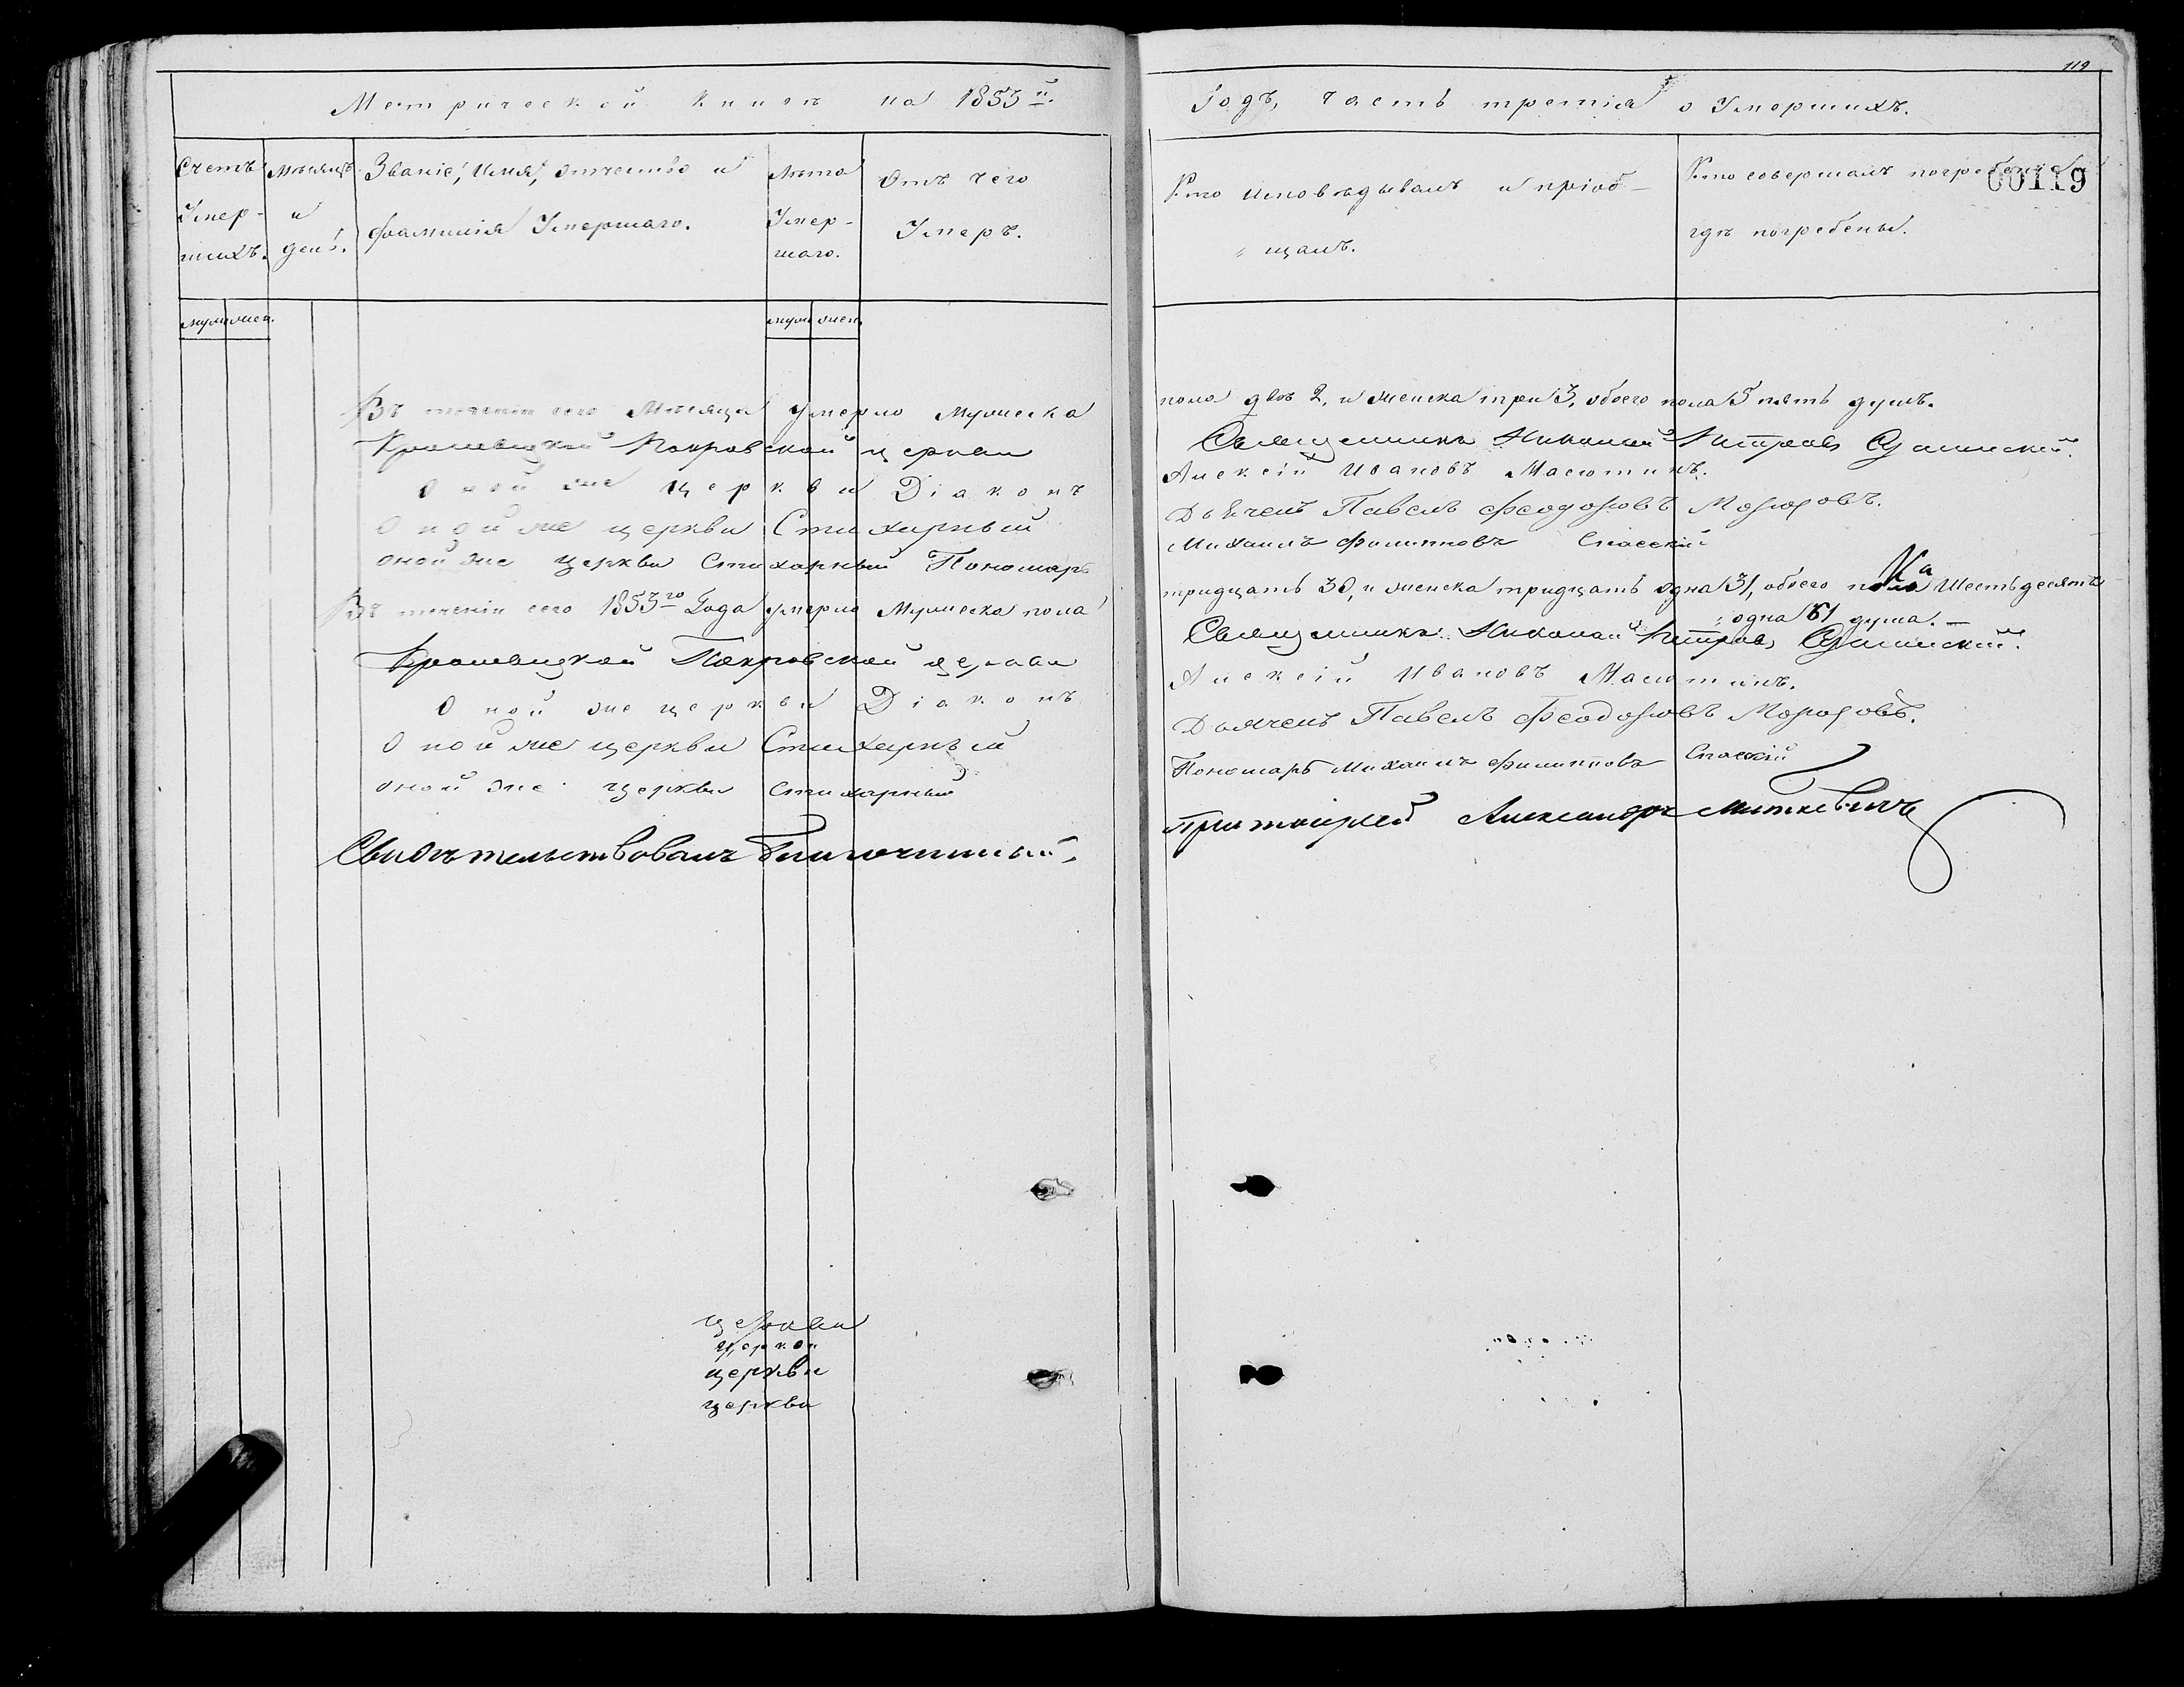 119
Метрической книги на 1853й. Годъ, часть третія о Умершихъ.
00119
Счетъ Умер-шихъ.
Мѣсяцъ и день.
Званіе, Имя, отчество и фамилія Умершаго.
Лѣта Умер-шаго.
Отъ чего Умеръ.
Кто исповѣдывалъ и пріоб-щалъ.
Кто совершалъ погребеніе и гдѣ погребены.
муж. жен.
муж. жен.
Въ теченіи сего Мѣсяца умерло Мужеска пола два 2, и женска три 3, обоего пола 5 пять душъ.
Покровской церкви Священникъ Николай Петровъ
Оной же церкви Діаконъ Алексій Ивановъ Масютинъ.
Оной же церкви Стихарный Дьячекъ Павелъ Феодоровъ Морозовъ.
оной же церкви Стихарный Пономарь Михаилъ Филипповъ Спасскій
Въ теченіи сего 1853го Года умерло Мужеска пола тридцать 30, и женска тридцать одна 31, обоего пола Шестьдесятъ
одна 61 душа.—
Покровской церкви Священникъ Николай Петровъ
Оной же церкви Діаконъ Алексій Ивановъ Масютинъ.
Оной же церкви Стихарный Дьячекъ Павелъ Феодоровъ Морозовъ.
оной же церкви стихарный Пономарь Михаилъ Филипповъ Спаскій
Свидѣтельствовалъ Благочинный, Протоіерей Александръ Миткевичъ
церкви
церкви
церкви
церкви